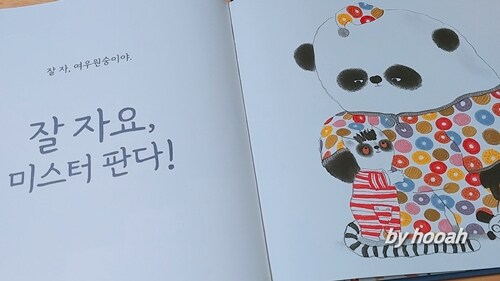 잘 자, 여우원숭이야.
잘 자요,
미스터 판다!
by hooah